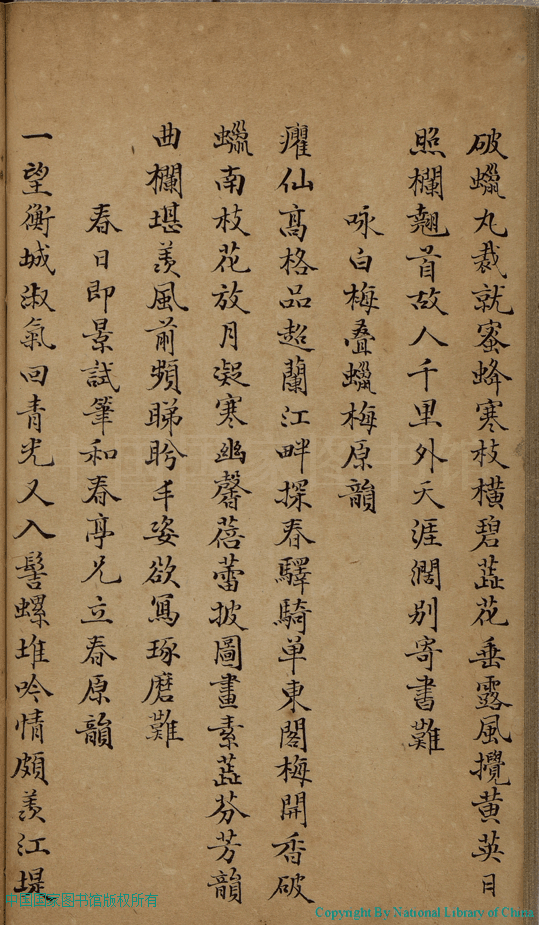 破蠟丸裁就蜜蜂寒枝橫碧蕋花垂露風攪黄英日
照欄翹首故人千里外天涯濶别寄書難
咏白梅叠蠟梅原韻
癯仙高格品超蘭江畔探春驛騎单東閣梅開香破
蠟南枝花放月凝寒幽馨蓓蕾披圖畫素蕋芬芳韻
曲欄堪羡風前頻睇盻丰姿欲寫琢磨難
春日即景試筆和春亭兄立春原韻
一望衡城淑氣回青光又入髻螺堆吟情頗羡江堤
中国国家图书馆
中国国家图书馆版权所有
Copyright By National Library of China